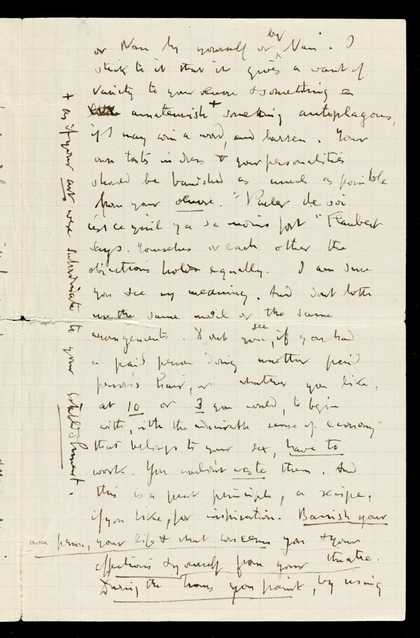 or Nan by yourself or by Nan. I
stick to it that it gives a want of
variety to your œuvre & something an
amateurish + something autophagous,
if I may coin a word, and barren. Your
own taste in dress & your personalities
should be banished as much as possible
from your œuvre. "Parler de soi
est ce qu'il y a de moins fort" Flaubert
says. Yourselves or each other the
objections holds equally. I am sure
you see my meaning. And don't both
use the same model or the same
arrangements. Don't you see, if you had
a paid person doing another paid
person's hair, or whatever you like,
at 10 or 3 you would, to begin
with, with the admirable sense of economy
that belongs to your sex, have to
work. You wouldn't waste them. And
this is a great principle, a recipe,
if you like, for inspiration. Banish your
own person, your life & what concerns you & your
affections & yourself from your theatre.
During the hours you paint, by using
+ as if your art were subordinate to your establishment.